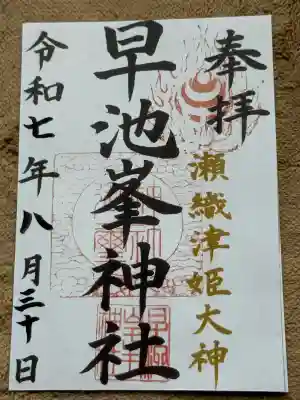 奉拝
瀬織津姫大神
早池峯神社
令和七年八月三十日